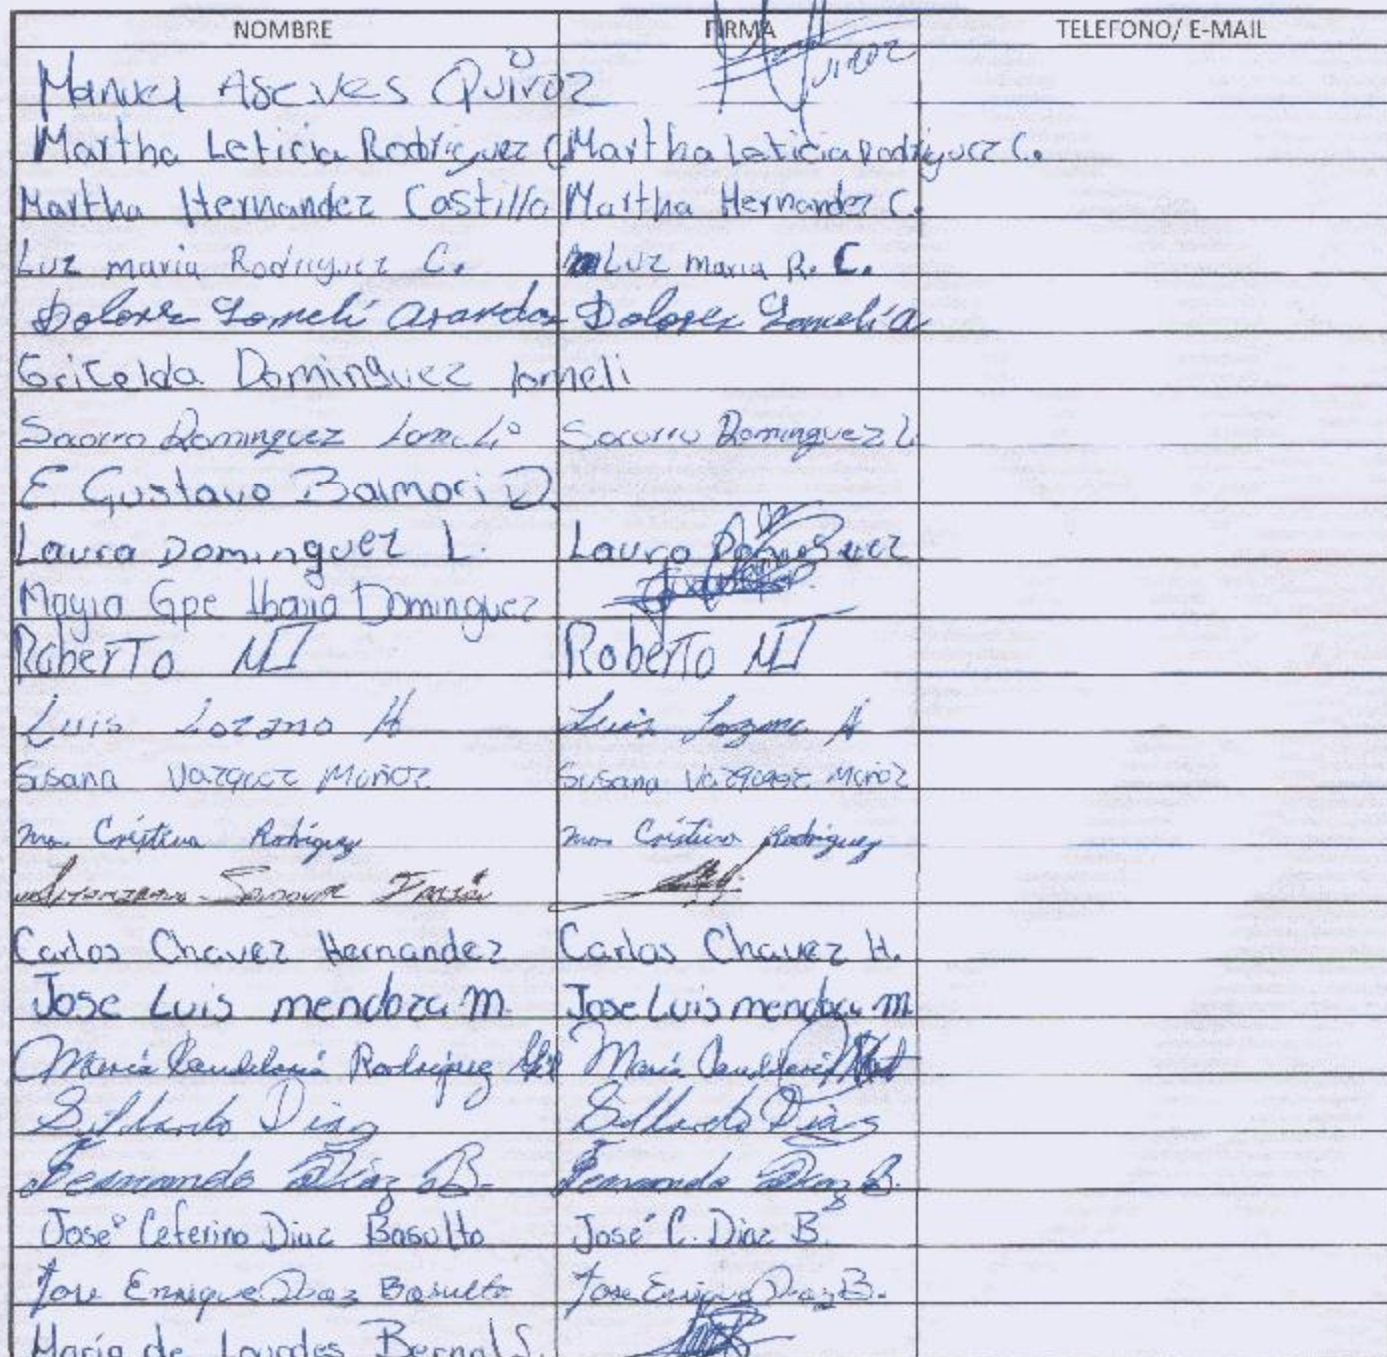 NOMBRE FIRMA TELEFONO/ E-MAIL
Manuel Aseves Quiroz
Martha Leticia Rodriguez C. Martha Leticia Rodriguez C.
Martha Hernandez Castillo Martha Hernandez C.
Luz maria Rodriguez C. Luz maria R. C.
Dolores Lomelí Dolores Lomelí A
Gricelda Dominguez lomeli
Socorro Dominguez Lomeli Socorro Dominguez L.
E Gustavo Balmori D.
Laura Dominguez L. Laura Dominguez
Mayra Gpe Ibarra Dominguez
Roberto MJ Roberto MJ
Luis Lozano H Luis Lozano H
Susana Vazquez Muñoz Susana Vazquez Muñoz
ma. Cristina Rodriguez ma. Cristina Rodriguez
Carlos Chavez Hernandez Carlos Chavez H.
Jose Luis mendoza M. Jose Luis mendoza M
María Candelaria Rodriguez María Candelaria
Díaz Díaz
Fernando Díaz B. Fernando Díaz B.
José Ceferino Diaz Basulto José C. Diaz B.
Jose Enrique Diaz Basulto Jose Enrique Diaz B.
María de Lourdes Bernal S.